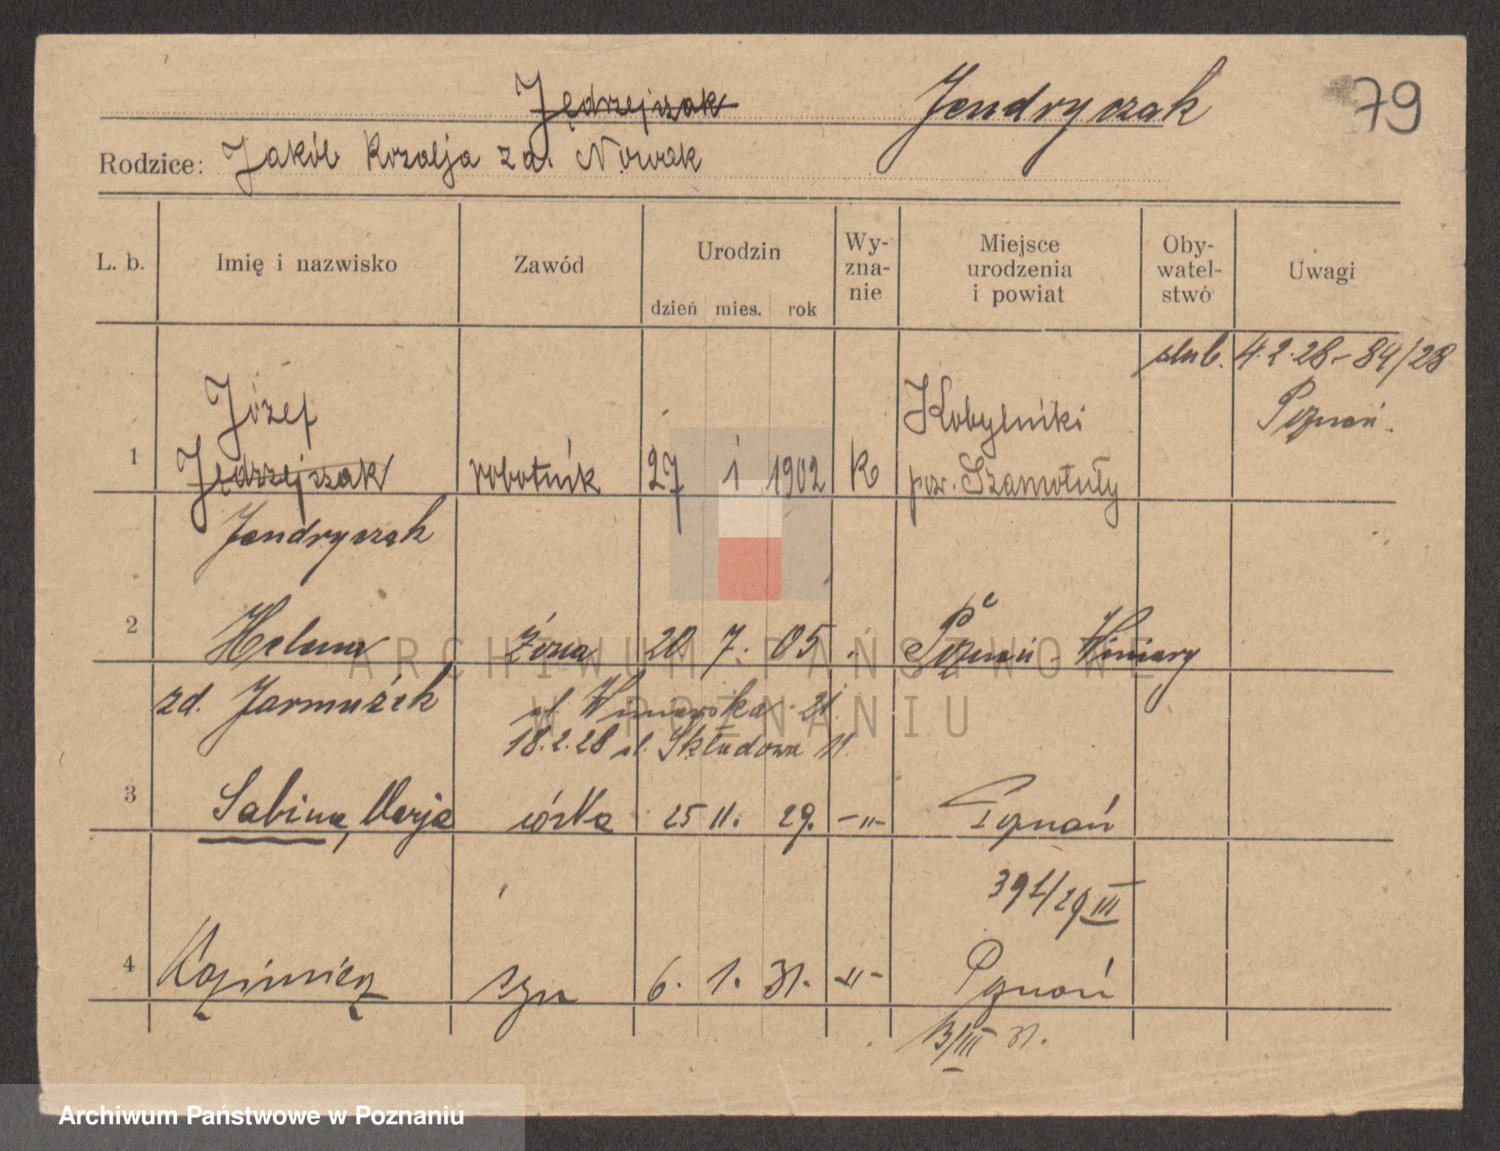 Jędrzejczak Jendryczak 79
Rodzice: Jakób Rozalja zd. Nowak
L. b. Imię i nazwisko Zawód Urodzin dzień mies. rok Wy-zna-nie Miejsce urodzenia i powiat Oby-watel-stwo Uwagi
ślub. 4.2.28 - 84/28
Poznań.
Józef Kobylniki
1 Jędrzejczak robotnik 27 i 1902 k pow. Szamotuły
Jendryczak
2 Helena żona 20 7. 05. Poznań - Winiary
zd. Jarmużek ul. Winiarska 21.
18.2.28 ul. Składowa 11.
3 Sabina, Marja córka 25 11. 29. -"- Poznań
391/29 III
4 Kazimierz syn 6. 1. 31. -"- Poznań
13/III 31.
ARCHIWUM PAŃSTWOWE
W POZNANIU
Archiwum Państwowe w Poznaniu